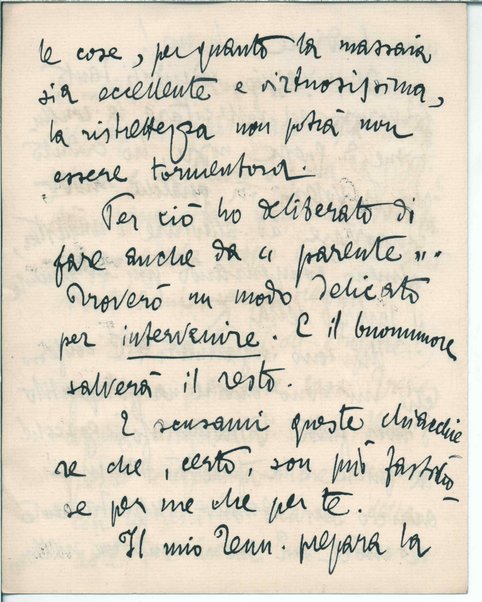 le cose, per quanto la massaia
sia eccellente e virtuosissima,
la ristrettezza non potrà non
essere tormentosa.
Per ciò ho deliberato di
fare anche da "parente".
Troverò un modo delicato
per intervenire. E il buonumore
salverà il resto.
E scusami queste chiacchie
re che, certo, son più fastidio
se per me che per te.
Il mio prepara la